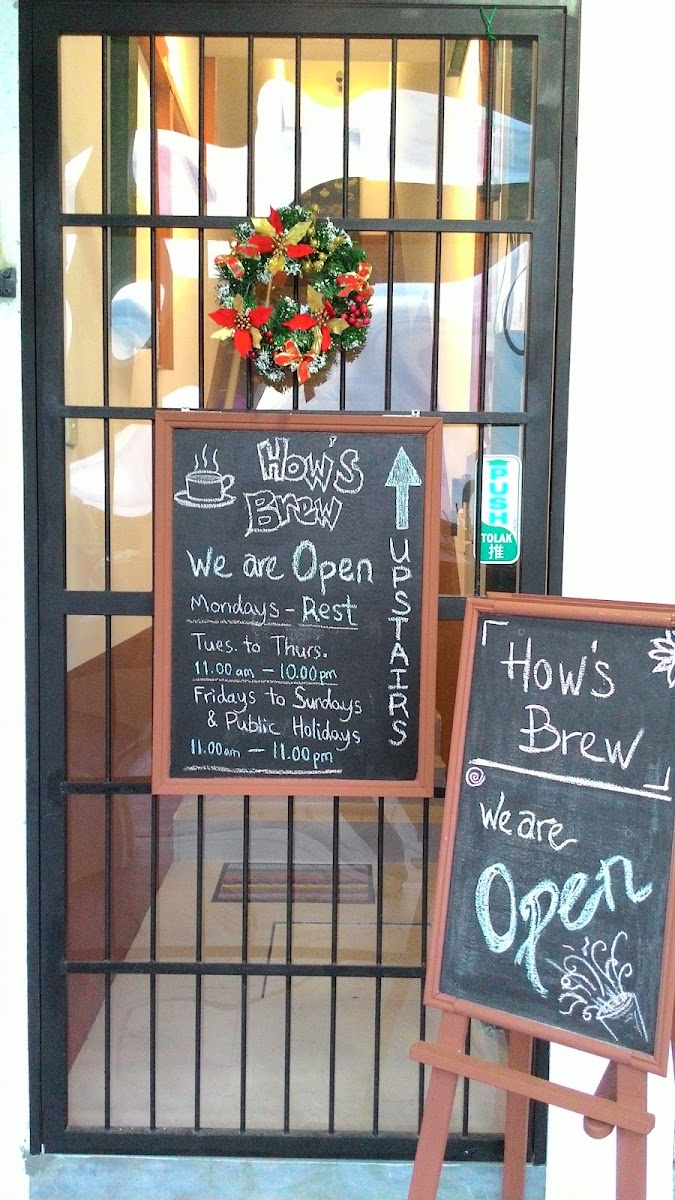 How's
Brew
We are Open
Mondays - Rest
Tues. to Thurs.
11.00 am — 10.00 pm
Fridays to Sundays
& Public Holidays
11.00am — 11.00 pm
UPSTAIRS
PUSH
TOLAK
推
How's
Brew
We are
Open